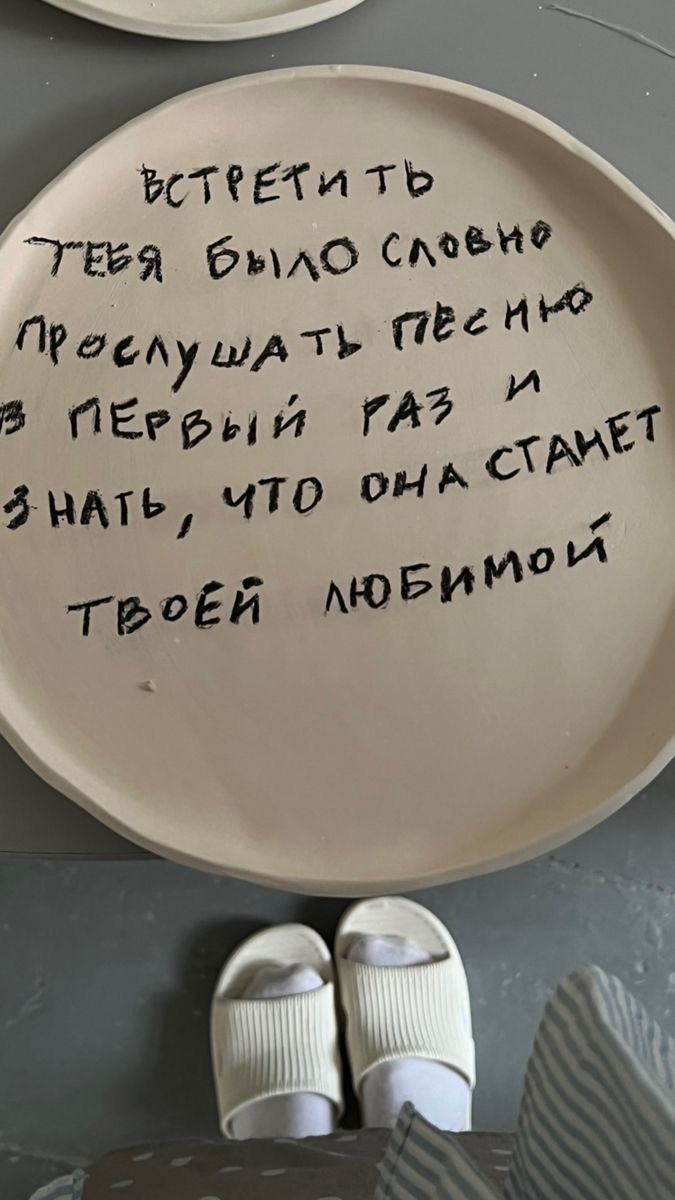 ВСТРЕТИТЬ
ТЕБЯ БЫЛО СЛОВНО
ПРОСЛУШАТЬ ПЕСНЮ
В ПЕРВЫЙ РАЗ И
ЗНАТЬ, ЧТО ОНА СТАНЕТ
ТВОЕЙ ЛЮБИМОЙ